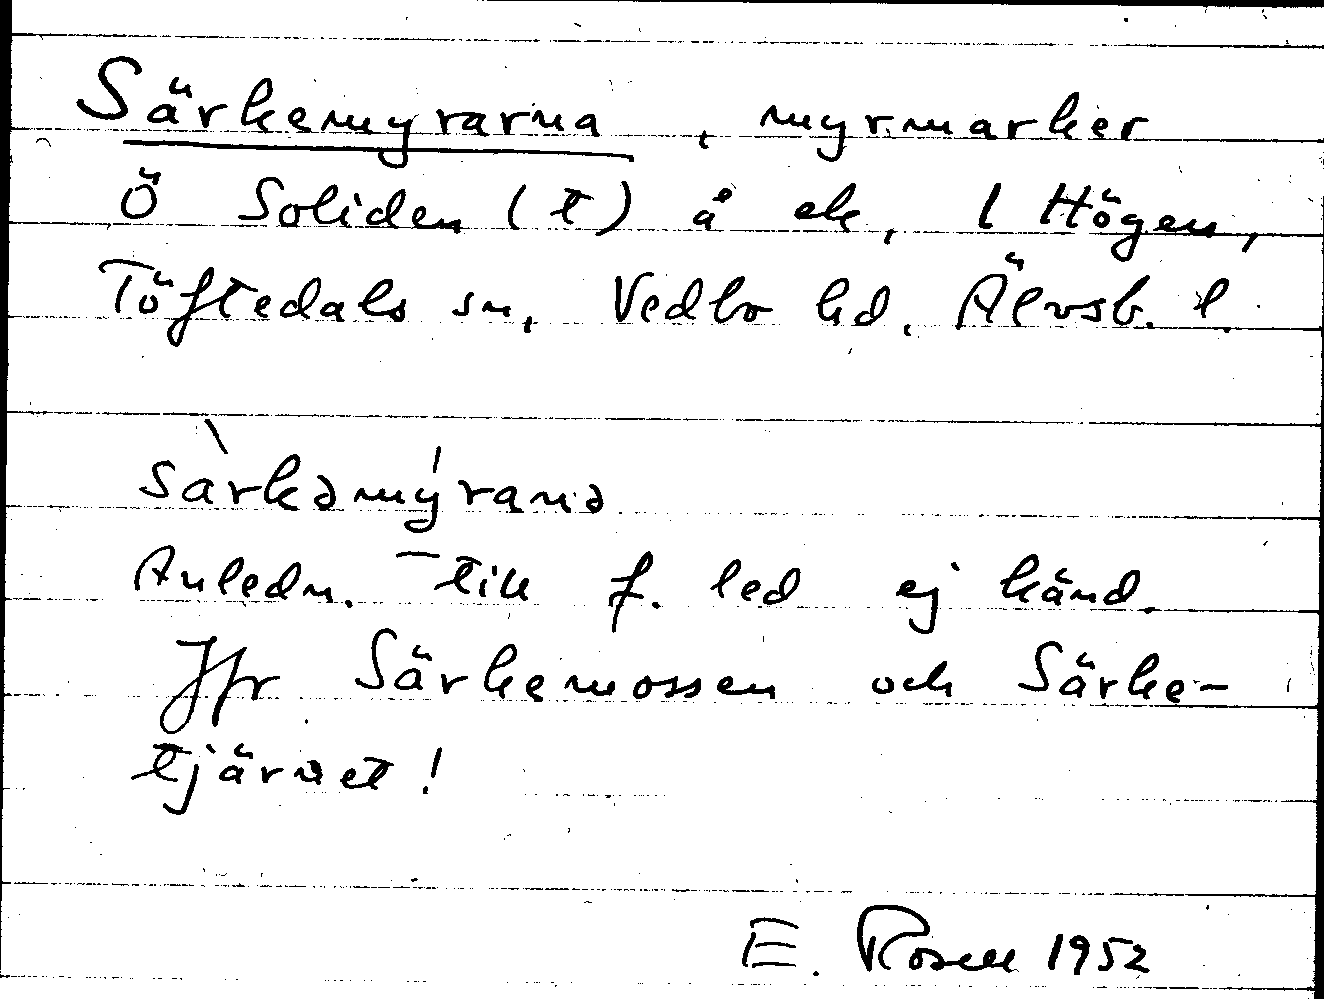 Särkemyrarna, myrmarker
Ö Soliden (t) å ek, 1 Högen,
Töftedals sn, Vedbo hd. Älvsb. l.
sàrkəmýranə
Anledn. till f. led ej känd.
Jfr Särkemossen och Särke-
tjärnet!
E. Rosell 1952